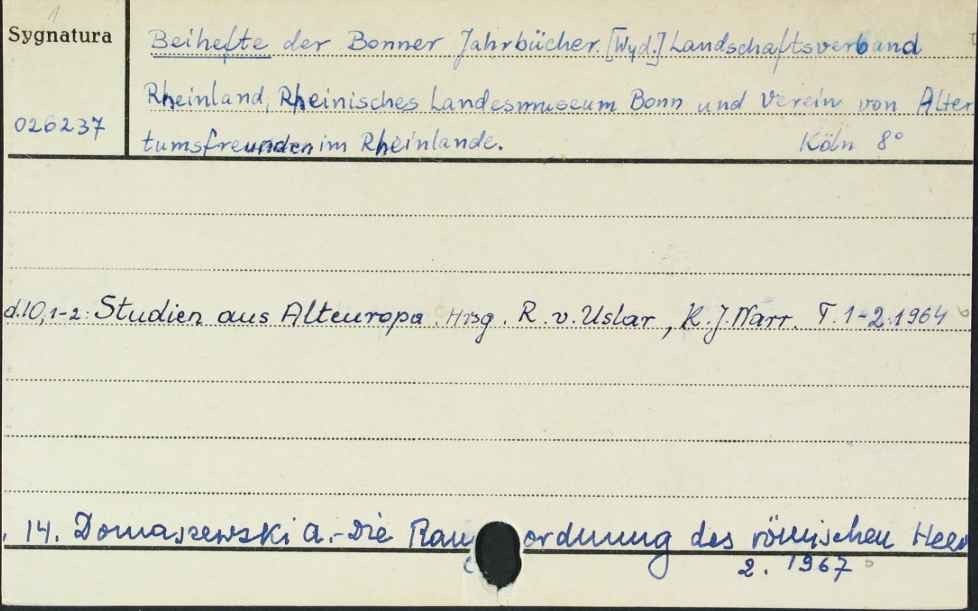 Sygnatura
Beihefte der Bonner Jahrbücher. [Wyd.] Landschaftsverband
Rheinland, Rheinisches Landesmuseum Bonn und Verein von Alter
026237
tumsfreunden im Rheinlande. Köln 8°
d.10,1-2: Studien aus Alteuropa. Hrsg. R. v. Uslar, K. J. Narr. T. 1-2.1964
. 14. Domaszewski A.-Die Ran ordnung des römischen Heer
2. 1967